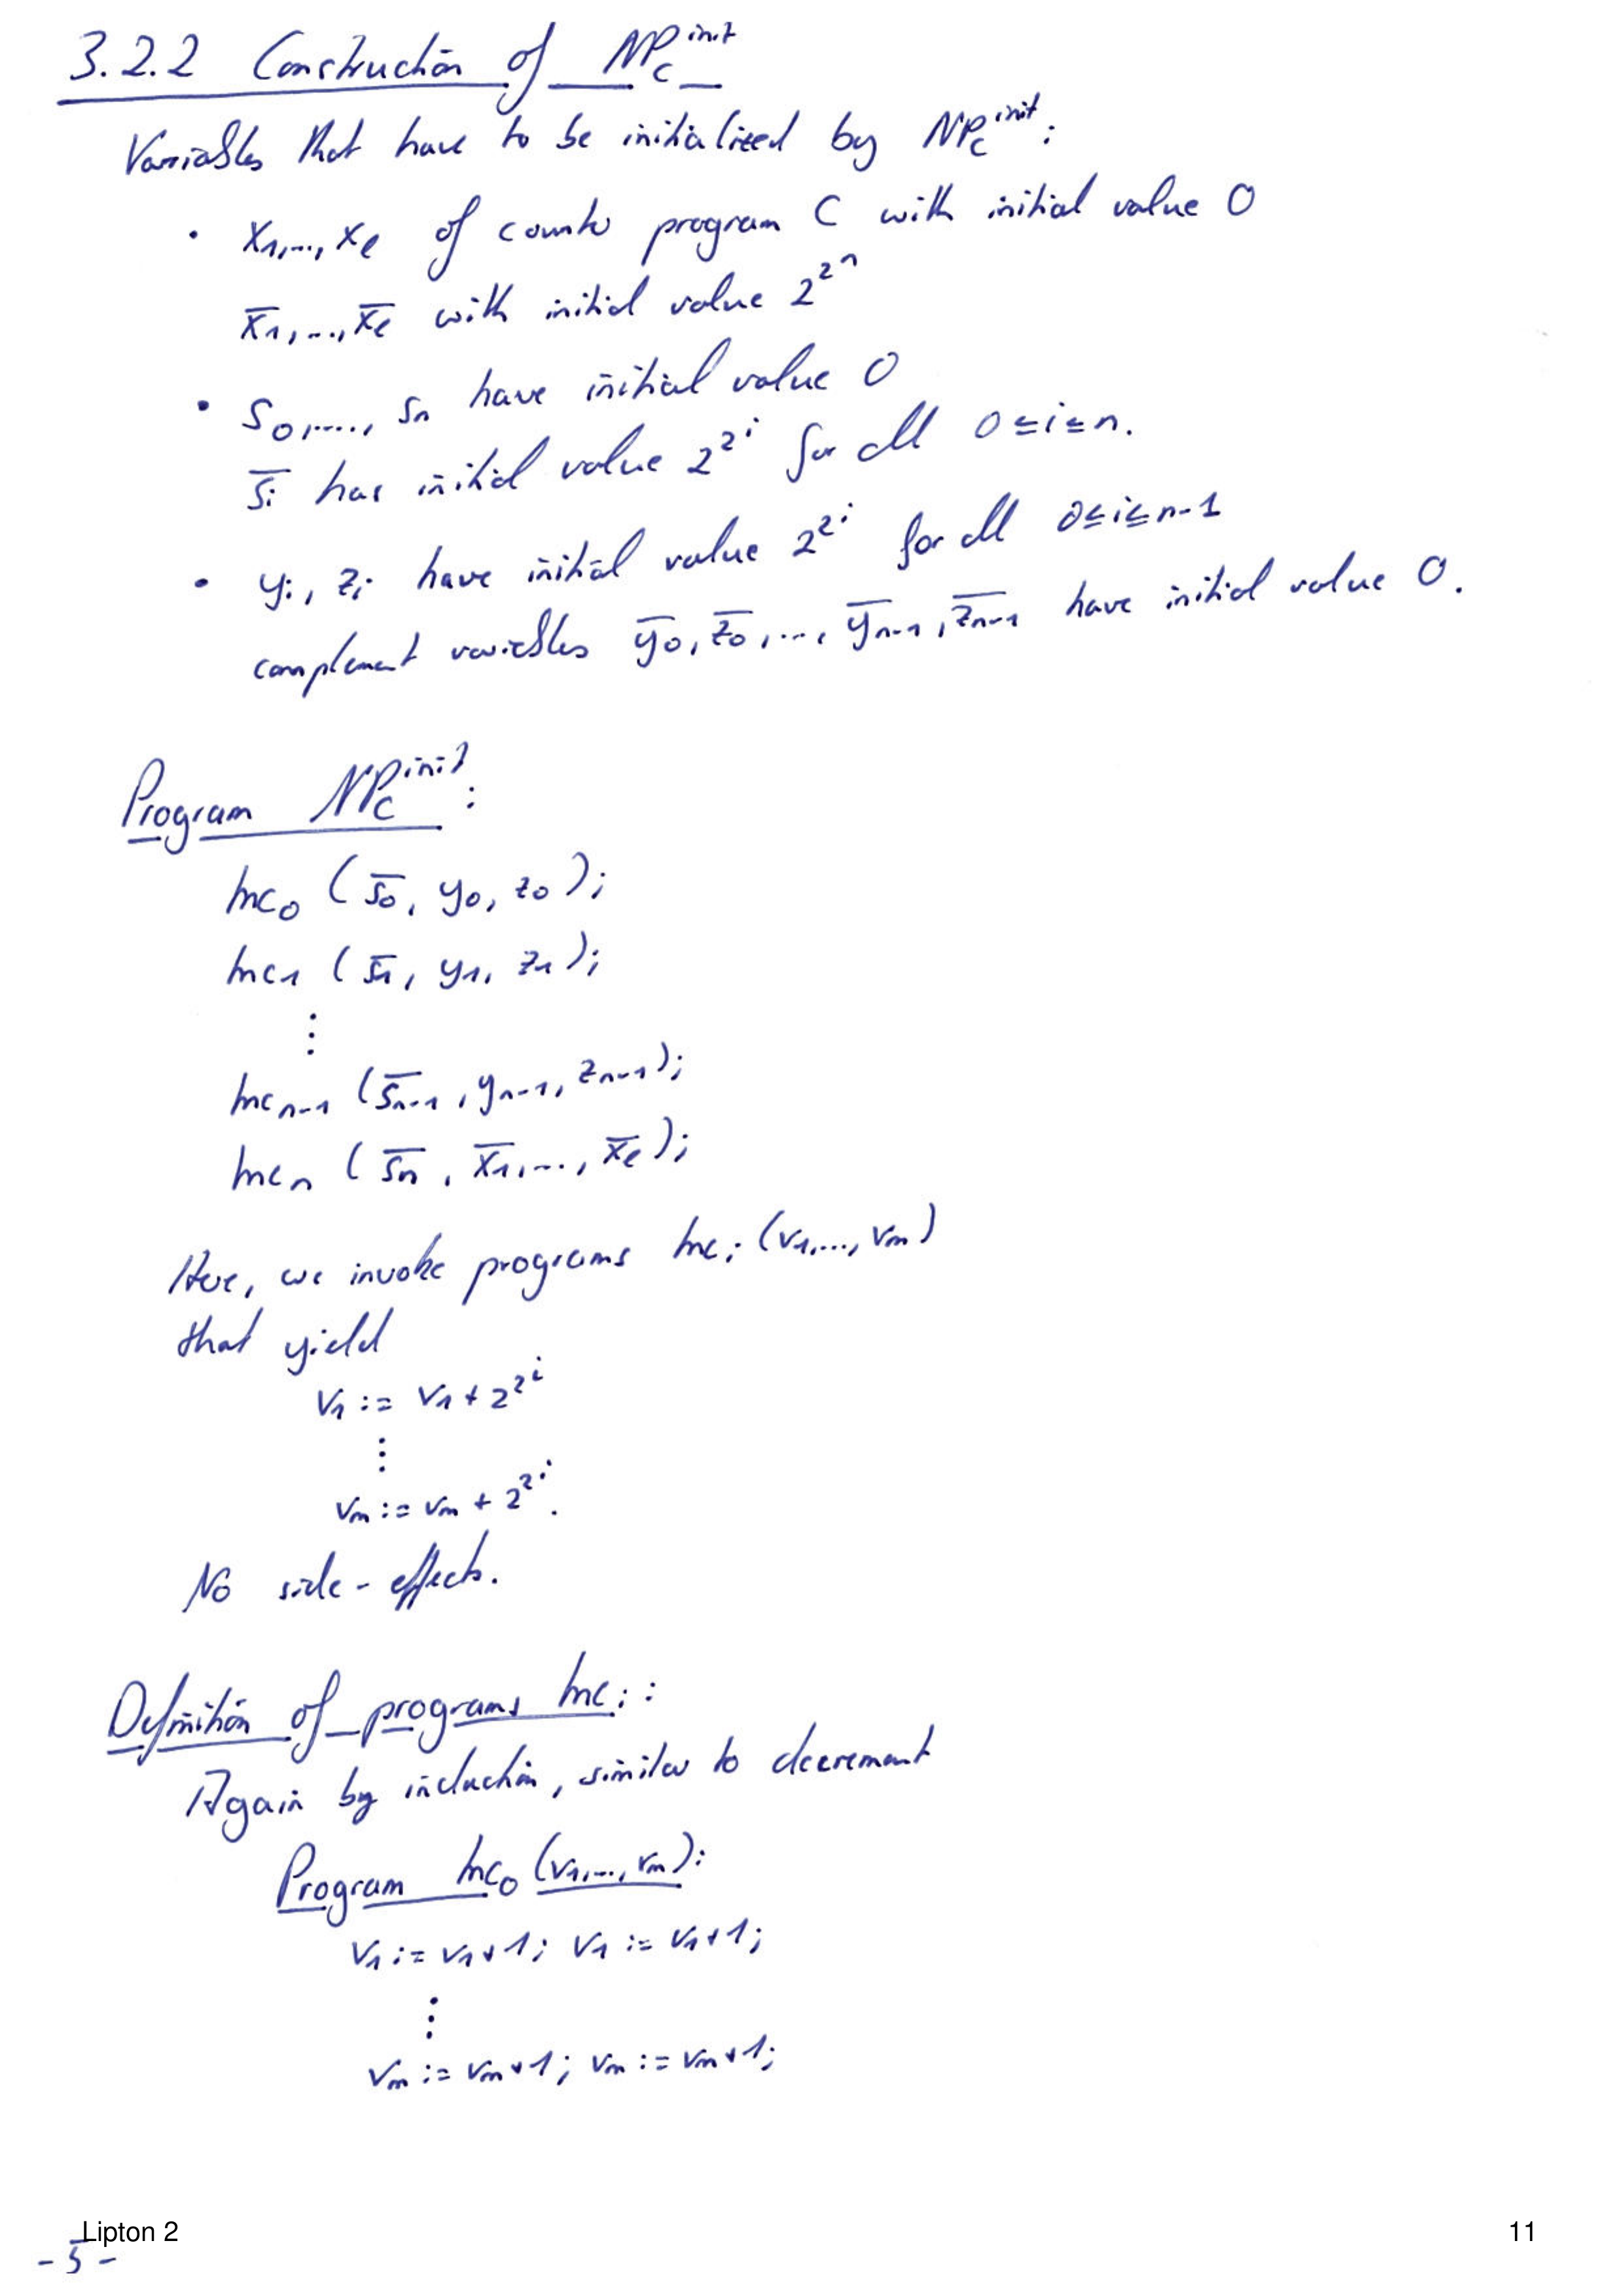 3.2.2 Construction of NP_C^init
Variables that have to be initialized by NP_C^init:
• x₁,..., x_ℓ of counter program C with initial value 0
x̄₁,..., x̄_ℓ with initial value 2^2^n
• s₀,...., s_n have initial value 0
s̄_i has initial value 2^2^i for all 0≤i≤n.
• y_i, z_i have initial value 2^2^i for all 0≤i≤n-1
complement variables ȳ₀, z̄₀,..., ȳ_n-1, z̄_n-1 have initial value 0.
Program NP_C^init:
Inc₀ (s̄₀, y₀, z₀);
Inc₁ (s̄₁, y₁, z₁);
⋮
Inc_n-1 (s̄_n-1, y_n-1, z_n-1);
Inc_n (s̄_n, x̄₁,..., x̄_ℓ);
Here, we invoke programs Inc_i (v₁,..., v_m)
that yield
v₁ := v₁ + 2^2^i
⋮
v_m := v_m + 2^2^i.
No side-effects.
Definition of programs Inc_i:
Again by induction, similar to decrement
Program Inc₀ (v₁,..., v_m):
v₁ := v₁+1; v₁ := v₁+1;
⋮
v_m := v_m+1; v_m := v_m+1;
Lipton 2 11
- 5 -